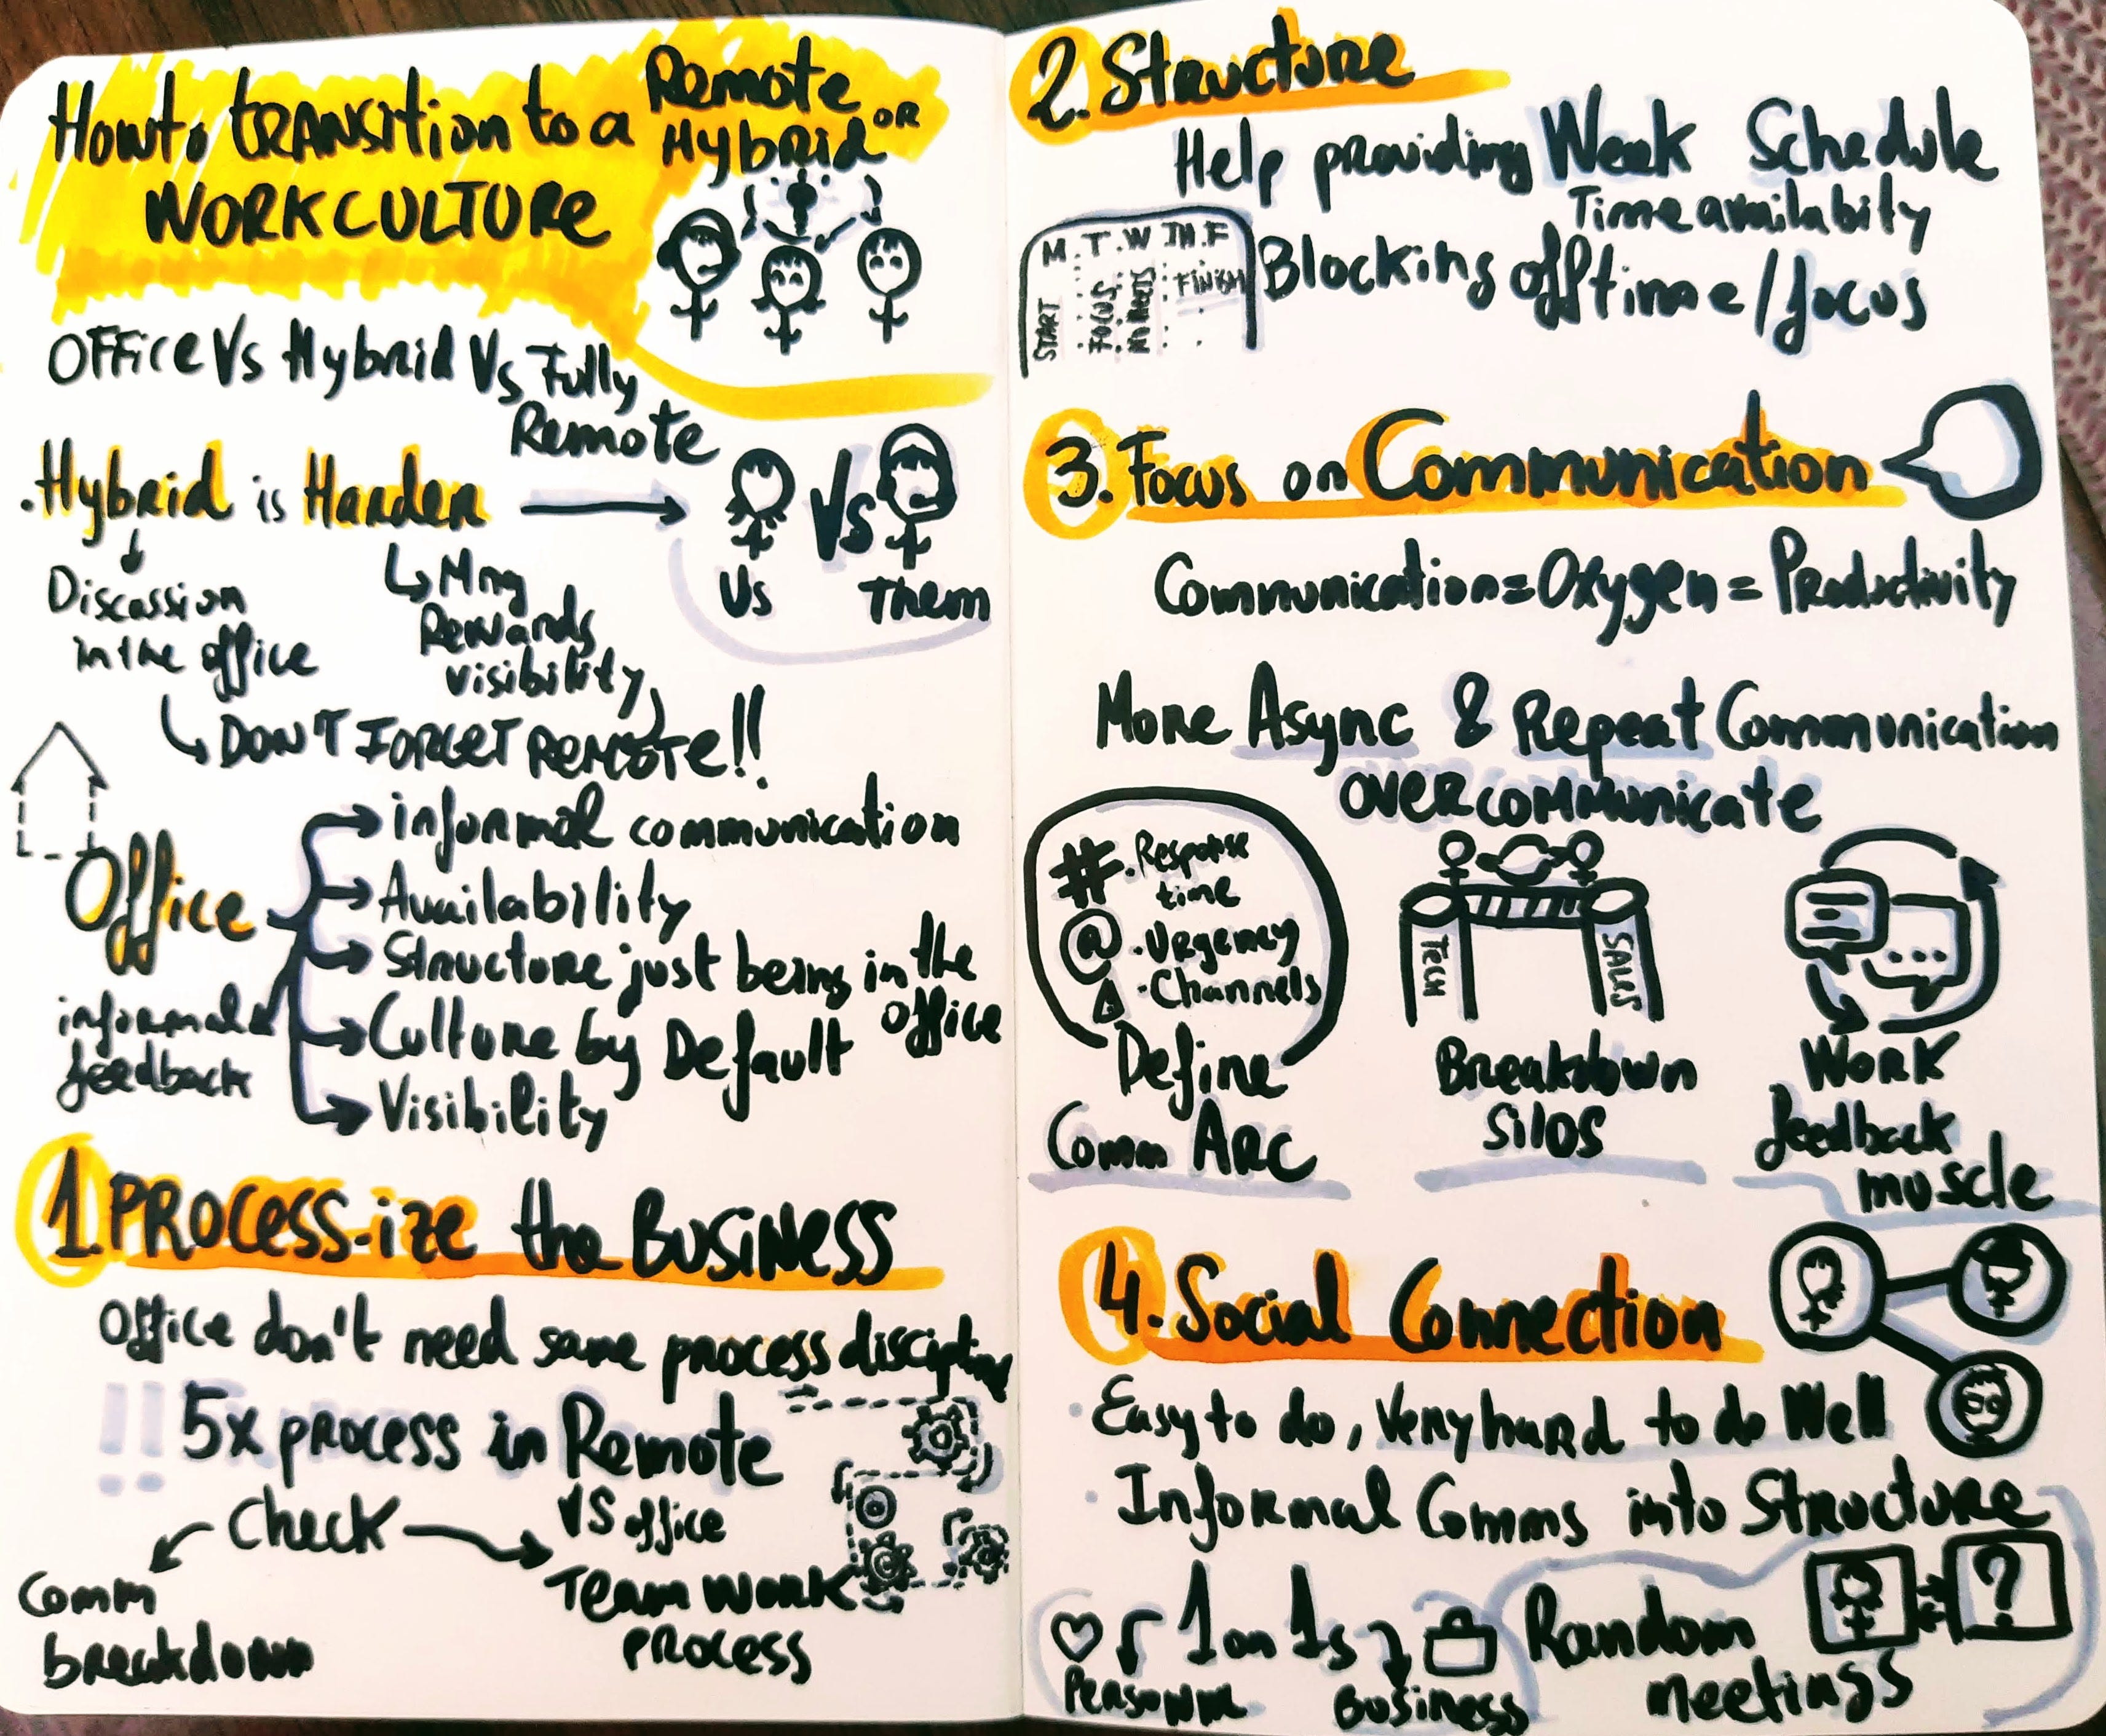 How to transition to a Remote or Hybrid
WORK CULTURE
Office Vs Hybrid Vs Fully Remote
.Hybrid is Harder
Us Vs Them
Discussion
in the office
Mng
Rewards
visibility
DON'T FORGET REMOTE!!
Office
informal communication
Availability
Structure just being in the office
Culture by Default
Visibility
informal
feedback
1. PROCESS-ize the BUSINESS
Office don't need same process discipline
!! 5x process in Remote
VS office
Check
Comm
breakdown
Team work
PROCESS
2. Structure
Help providing Week Schedule
Time availabity
Blocking off time/focus
M.T.W TH.F
START
FOCUS
FINISH
3. Focus on Communication
Communication=Oxygen=Productivity
More Async & Repeat Communication
overcommunicate
# .Response
time
@ .Urgency
.Channels
Define
Comm ARC
TECH
SALES
Breakdown
Silos
Work
feedback
muscle
4. Social Connection
Easy to do, very hard to do Well
Informal Comms into Structure
1 on 1s
Personal
Business
Random
meetings
?